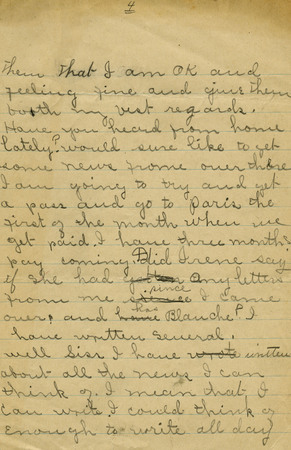 4
them that I am OK and
feeling fine and give them
booth my best regards.
Have you heard from home
lately? would sure like to get
some news frome over there
I am going to try and get
a pass and go to Paris the
first of the month when we
get paid. I have three months
pay coming. Did Irene say
if she had any letters
from me since I came
over? and has Blanche? I
have written several.
well Sis I have wrote written
about all the news I can
think of. I mean that I
can write. I could think of
enough to write all day